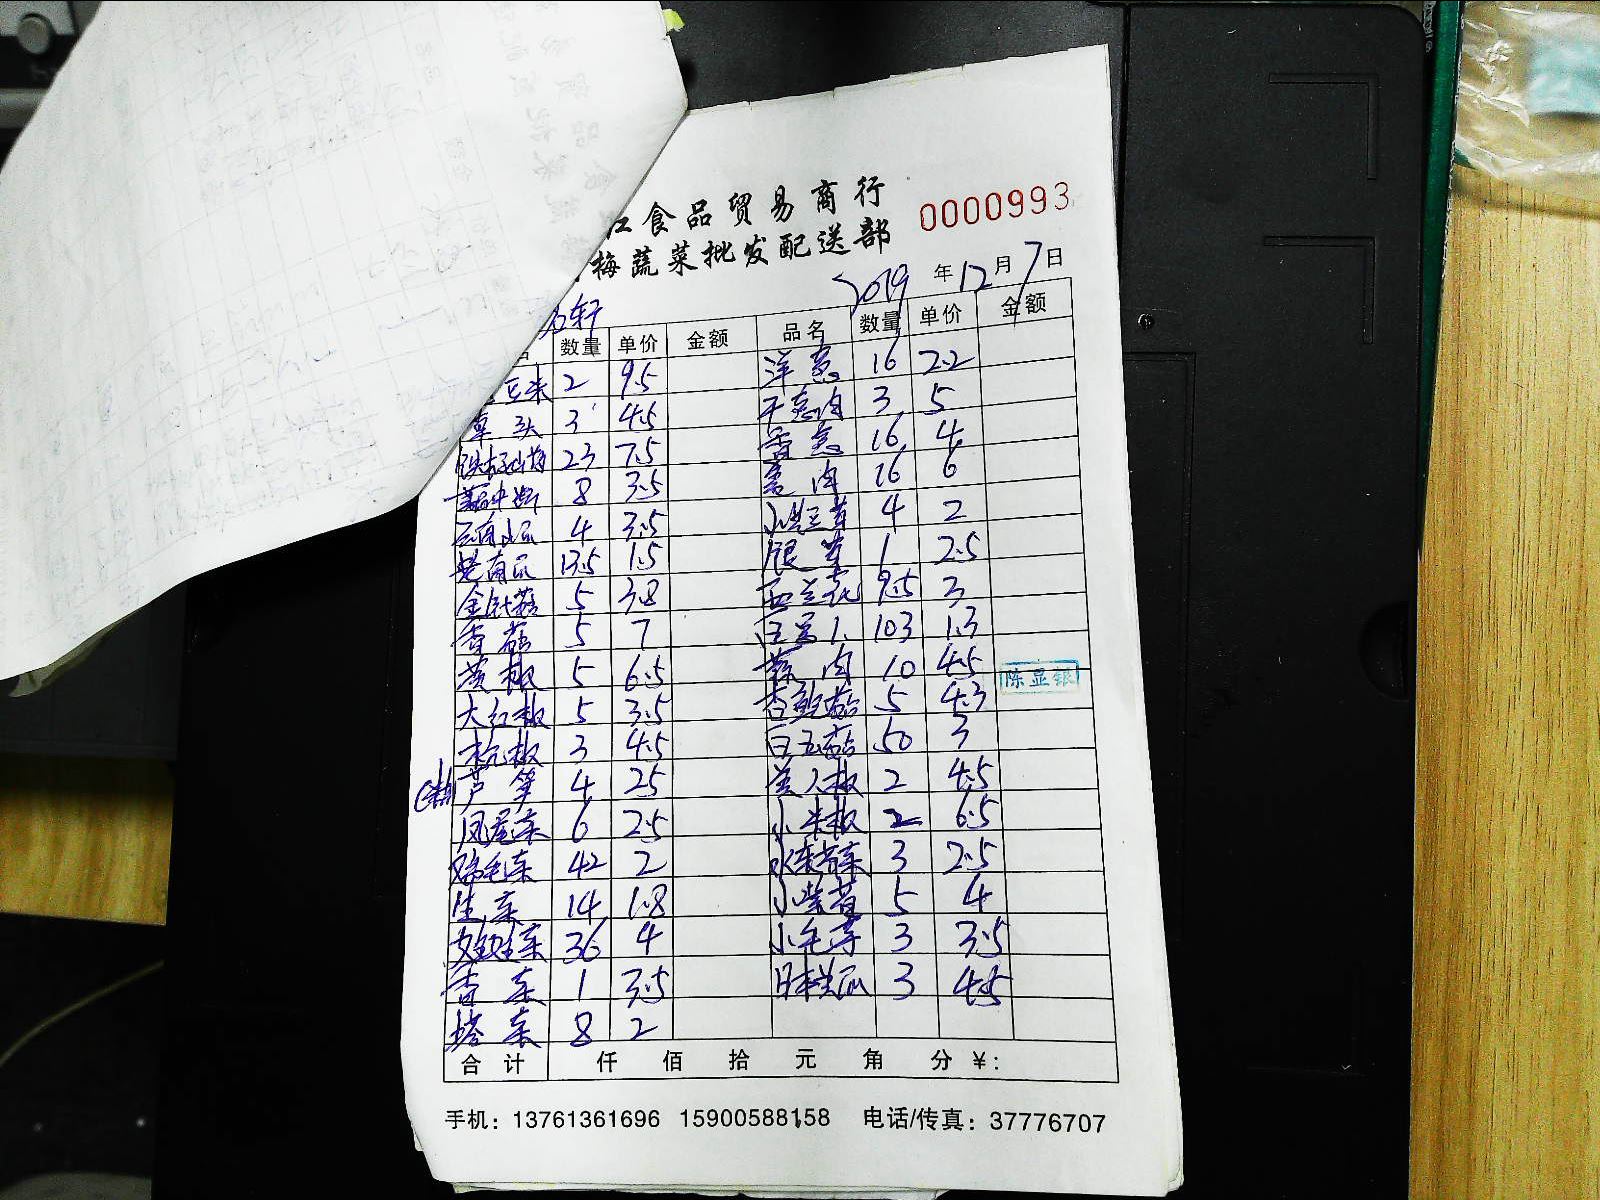 江食品贸易商行
梅蔬菜批发配送部
0000993
2019年12月7日
轩
数量 单价 金额 品名 数量 单价 金额
豆米 2 9.5 洋葱 16 2.2
草头 3 4.5 干葱肉 3 5
铁棍山药 23 7.5 香葱 16 4
8 3.5 姜肉 16 6
云南小瓜 4 3.5 4 2
老南瓜 13.5 1.5 银芽 1 2.5
金针菇 5 3.8 西兰花 9.5 3
香菇 5 7 103 1.3
黄椒 5 6.5 蒜肉 10 4.5
陈显银
大红椒 5 3.5 杏鲍菇 5 4.3
杭椒 3 4.5 白玉菇 50 3
芦笋 4 25 美人椒 2 4.5
凤尾菜 6 2.5 小米椒 2 6.5
鸡毛菜 42 2 水芹菜 3 2.5
生菜 14 1.8 5 4
娃娃菜 36 4 小毛芋 3 3.5
香菜 1 3.5 日本黄瓜 3 4.5
塔菜 8 2
合计 仟 佰 拾 元 角 分 ¥:
手机: 13761361696 15900588158 电话/传真: 37776707